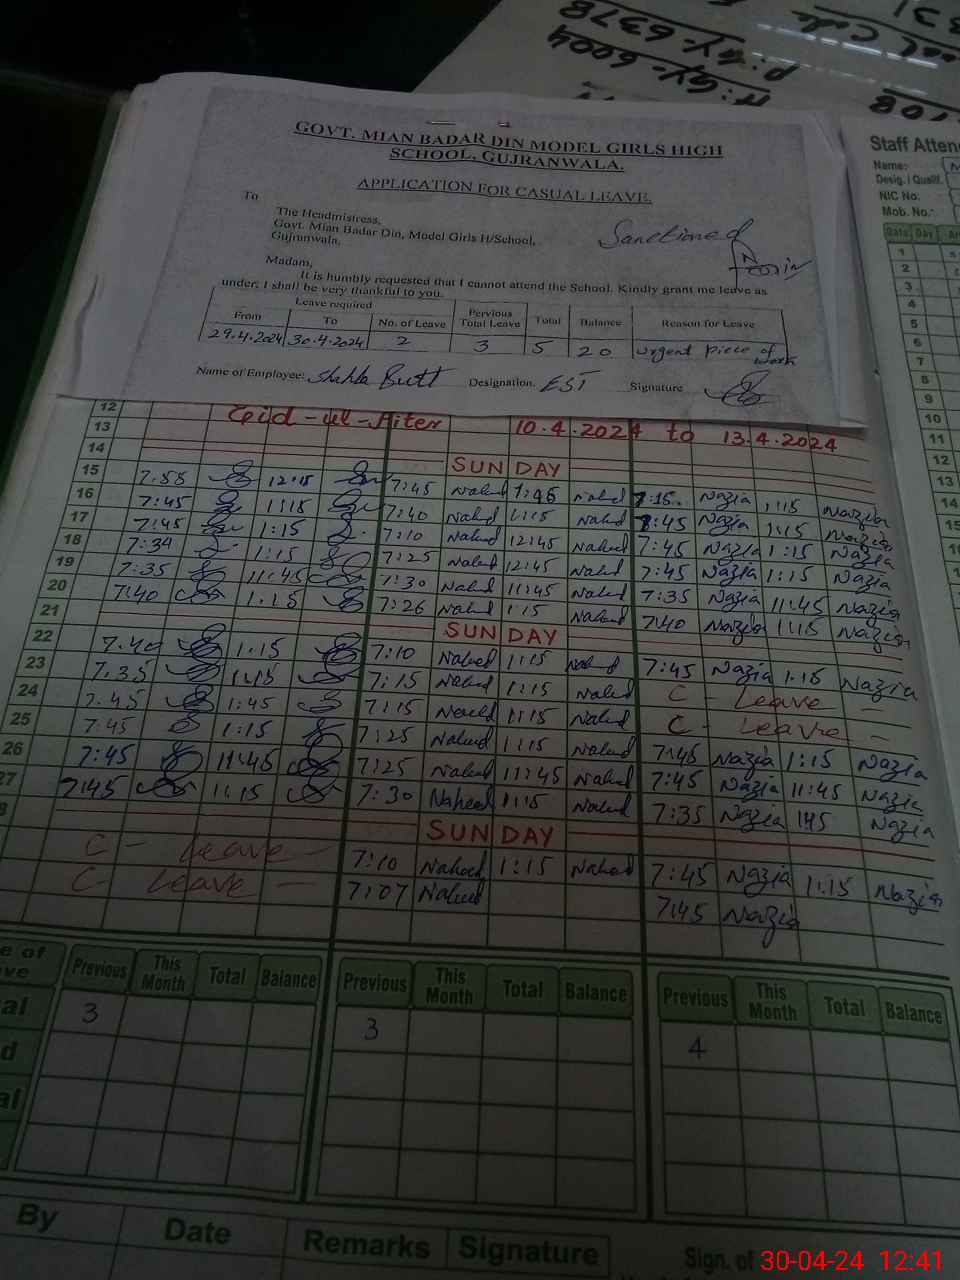 P: Gy- 6378
H: Gy- 6004
Code
GOVT. MIAN BADAR DIN MODEL GIRLS HIGH
SCHOOL, GUJRANWALA.
APPLICATION FOR CASUAL LEAVE.
To
The Headmistress,
Govt. Mian Badar Din, Model Girls H/School,
Gujranwala,
Sanctioned
Madam,
It is humbly requested that I cannot attend the School. Kindly grant me leave as
under. I shall be very thankful to you.
Leave required Pervious Total Leave Total Balance Reason for Leave
From To No. of Leave
29.4.2024 30.4.2024 2 3 5 20 urgent piece of work
Name of Employee: Shahla Butt Designation. EST Signature
Staff Atten
Name:
Desig. / Qualif.
NIC No.
Mob. No.:
Date Day
1
2
3
4
5
6
7
8
9
10
11
12
13
14
15
12
13 Eid-ul-Fiter 10.4.2024 to 13.4.2024
14 SUNDAY
15 7.58 12:15 7:45 Nahed 1:46 Nahed 7:15 Nazia 1:15 Nazia
16 7:45 1:15 7:40 Nahed 1:15 Nahed 7:45 Nazia 1:15 Nazia
17 7:45 1:15 7:10 Nahed 12:45 Nahed 7:45 Nazia 1:15 Nazia
18 7:34 1:15 7:25 Nahed 12:45 Nahed 7:45 Nazia 1:15 Nazia
19 7:35 11:45 7:30 Nahed 11:45 Nahed 7:35 Nazia 11:45 Nazia
20 7:40 1:15 7:26 Nahed 1:15 Nahed 7:40 Nazia 1:15 Nazia
21 SUNDAY
22 7.40 1:15 7:10 Naheed 1:15 Nahed 7:45 Nazia 1:15 Nazia
23 7.35 1:15 7:15 Naheed 1:15 Nahed C - Leave -
24 7.45 1:45 7:15 Naheed 1:15 Nahed C - Leave -
25 7:45 1:15 7:25 Nahed 1:15 Nahed 7:45 Nazia 1:15 Nazia
26 7:45 11:45 7:25 Nahed 11:45 Nahed 7:45 Nazia 11:45 Nazia
27 7:45 1:15 7:30 Naheed 1:15 Nahed 7:35 Nazia 1:45 Nazia
8 SUNDAY
C - Leave - 7:10 Naheed 1:15 Nahed 7:45 Nazia 1:15 Nazia
C - Leave - 7:07 Naheed 7:45 Nazia
Previous This Month Total Balance Previous This Month Total Balance Previous This Month Total Balance
3 3 4
By Date Remarks Signature Sign. of
30-04-24 12:41